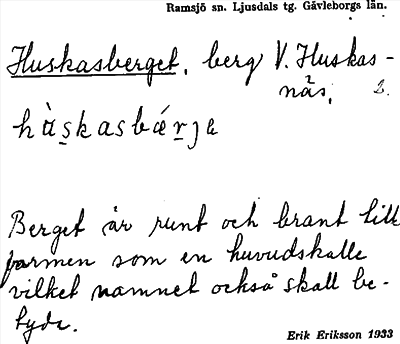 Ramsjö sn. Ljusdals tg. Gävleborgs län.
Huskasberget, berg V. Huskas-
näs.
Berget är runt och brant till
formen som en huvudskalle
vilket namnet också skall be-
tyda.
Erik Eriksson 1933